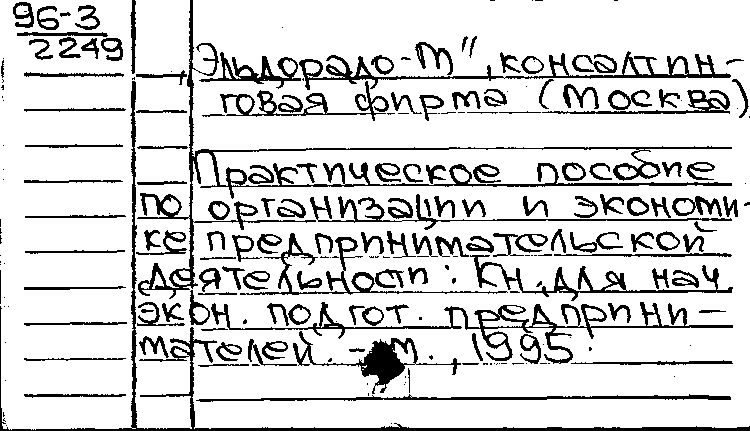 96-3
2249
„Эльдорадо-М", консалтин-
говая фирма (Москва)
Практическое пособие
по организации и экономи-
ке предпринимательской
деятельности: Кн. для нач.
экон. подгот. предприни-
мателей. - М., 1995.